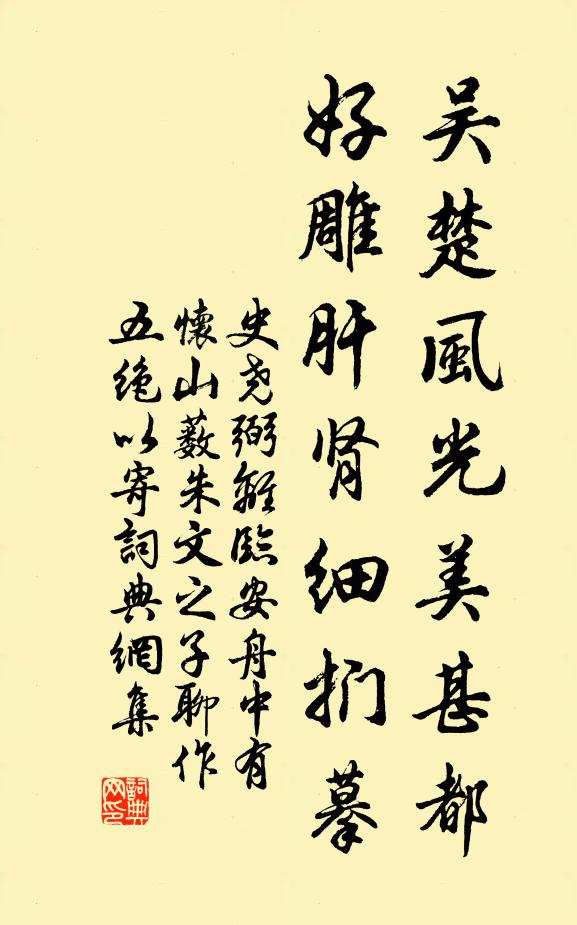 吴楚風光美甚都
好雕肝肾细捫摹
史堯弼離臨安舟中有
懷山薮朱文之子聊作
五絶以寄詞典網集
詞典
网印